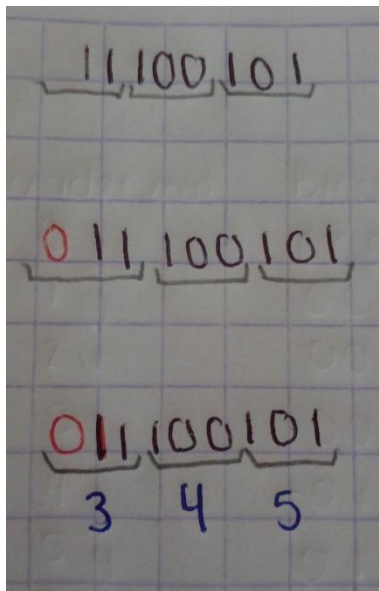 11 100 101
011 100 101
011 100 101
3 4 5